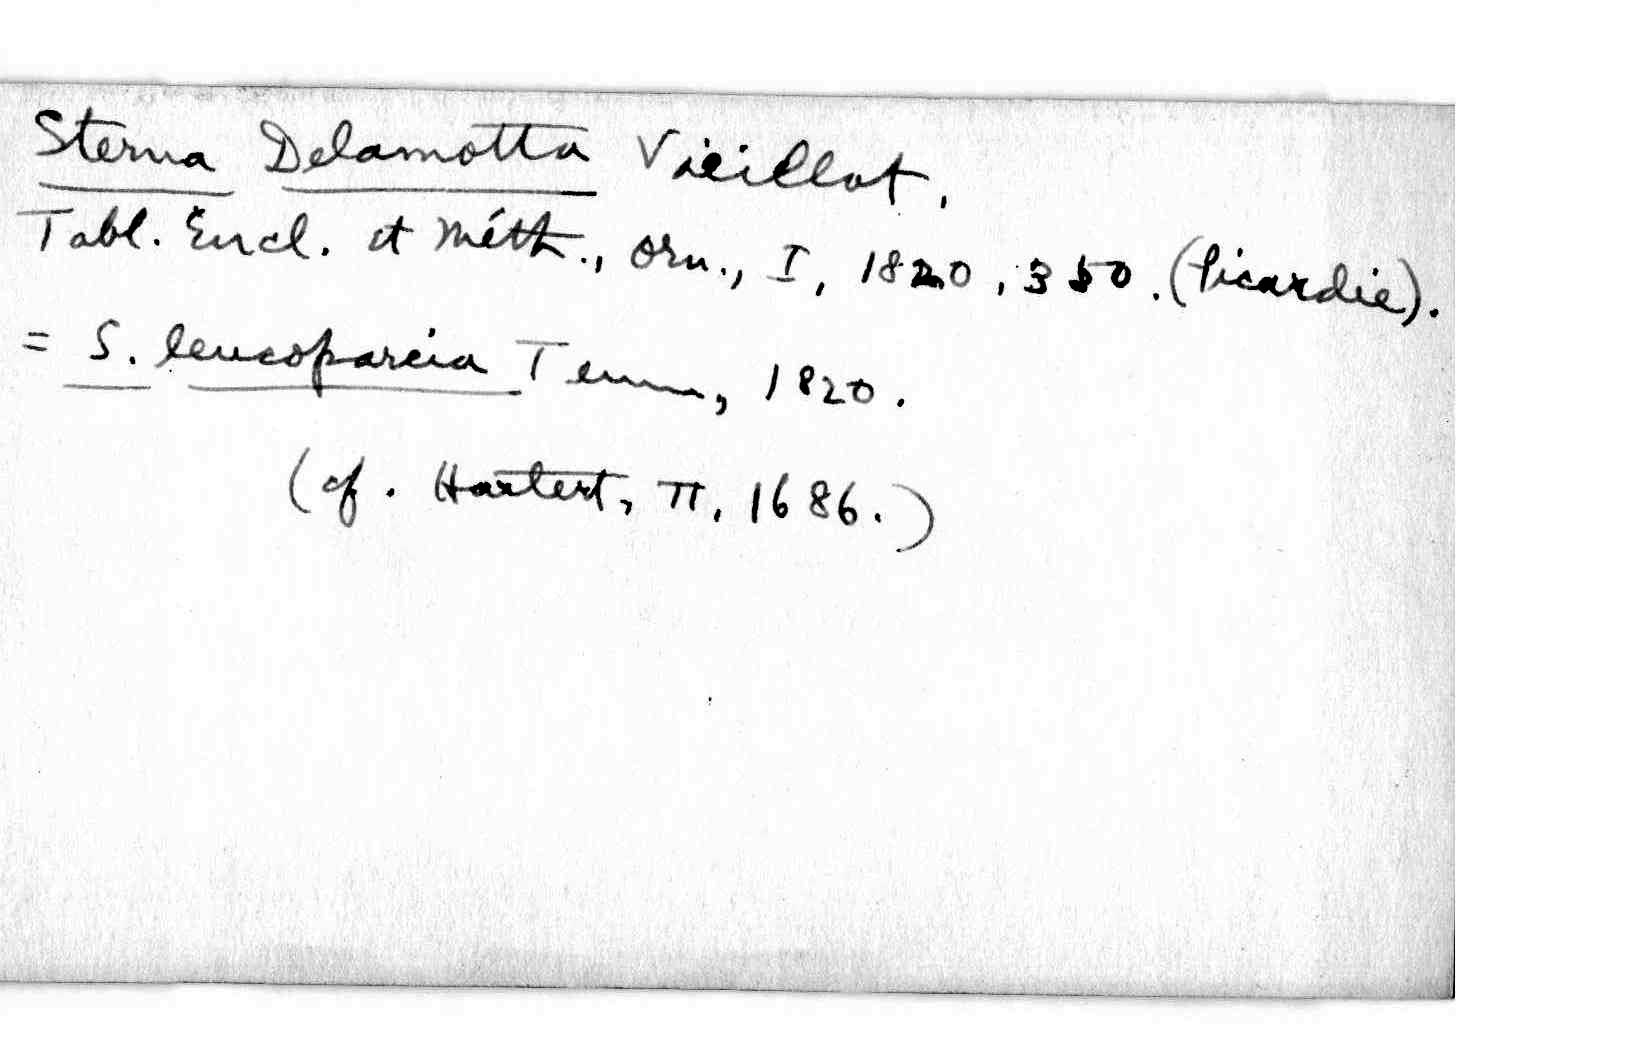 Sterna Delamotta Vieillot,
Tabl. Encl. et Méth., Orn., I, 1820, 350. (Picardie).
= S. leucopareia Temm, 1820.
(cf. Hartert, II, 1686.)